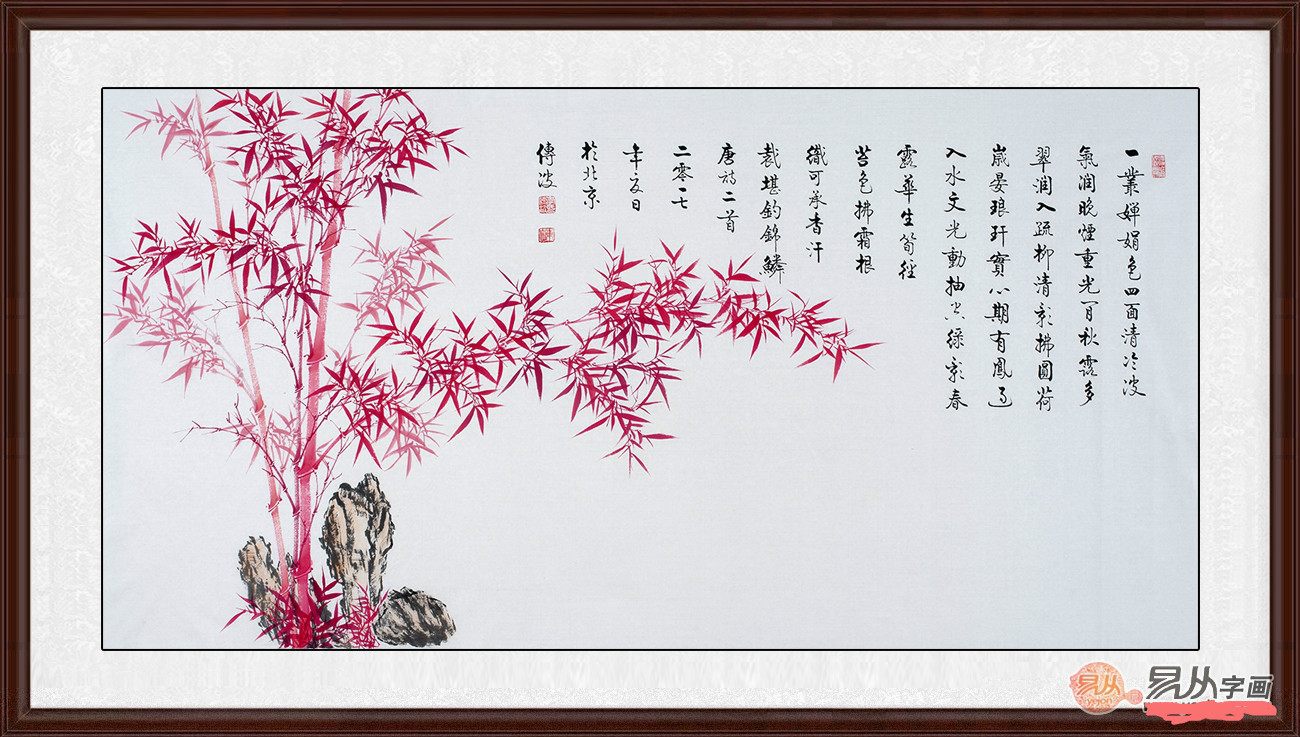 一叢嬋娟色四面清冷波
氣潤晚煙重光閒秋露多
翠潤入疏柳清影拂圓荷
歲晏琅玕實心期有鳳過
入水文光動抽空綠影春
露華生筍徑
苔色拂霜根
織可承香汗
裁堪釣錦鱗
唐詩二首
二零一七
年夏日
於北京
傳波
易从
易从字画